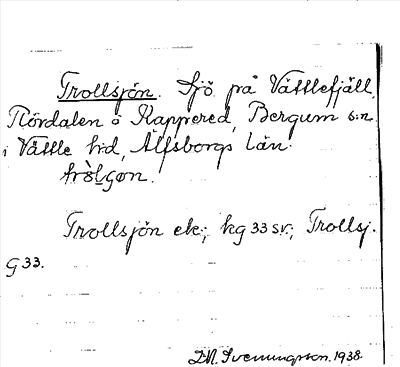 Trollsjön. Sjö på Vättlefjäll,
Rördalen o Käppered, Bergum s:n
i Vättle hd, Älfsborgs län.
tròlſꞬon.
Trollsjön ek.; kg 33 sv.; Trollsj.
G 33.
D.N. Svenningsson. 1938